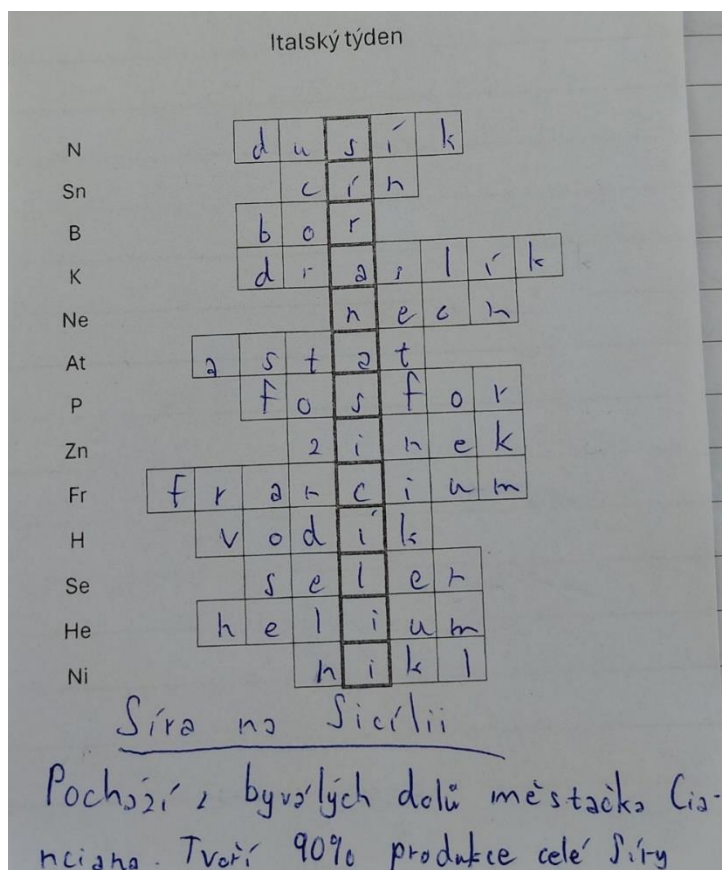 Italský týden
N dusík
Sn cín
B bor
K draslík
Ne neon
At astat
P fosfor
Zn zinek
Fr francium
H vodík
Se selen
He helium
Ni nikl
Síra na Sicílii
Pochází z bývalých dolů městačka Cia-
nciana. Tvoří 90% produkce celé síry